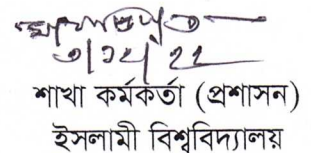 ৩|১২| ২২
শাখা কর্মকর্তা (প্রশাসন)
ইসলামী বিশ্ববিদ্যালয়